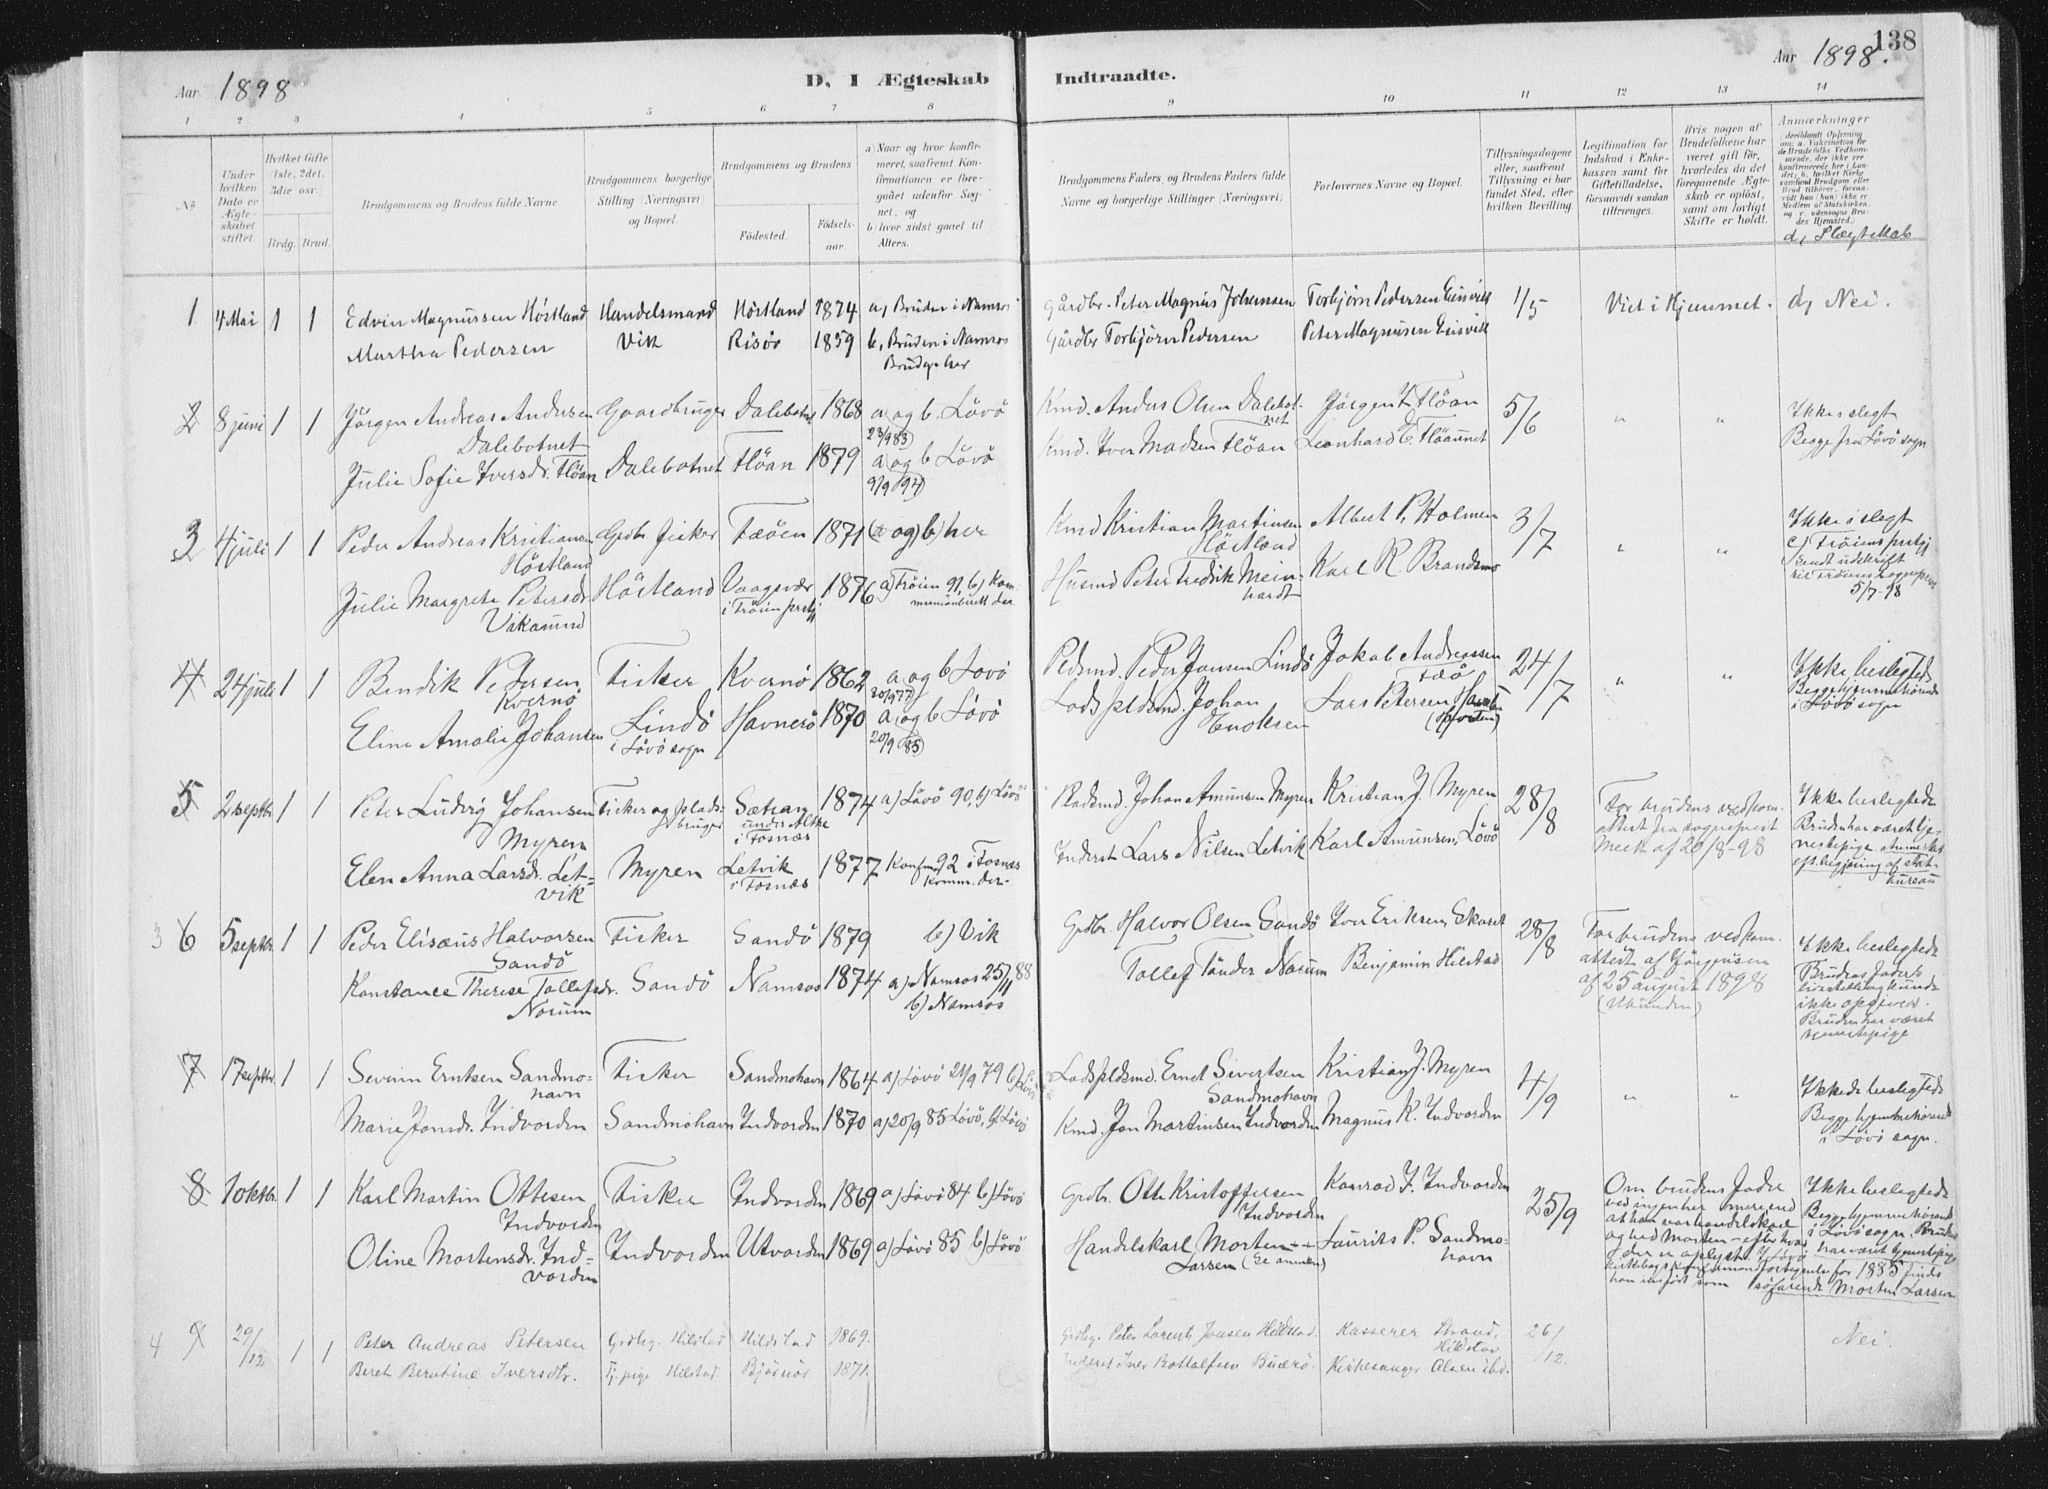 138
Aar 1898
D, I Ægteskab Indtraadte.
Aar 1898.
1 2 3 4 5 6 7 8 9 10 11 12 13 14
No
Under hvilken Dato er Ægteskabet stiftet
Hvilket Gifte (1ste, 2det, 3die osv.
Brdg. Brud.
Brudgommens og Brudens fulde Navne
Brudgommens borgerlige Stilling (Næringsvei) og Bopæl.
Brudgommens og Brudens
Fødested.
Fødselsaar.
a) Naar og hvor konfirmeret, saafremt Konfirmationen er foregaaet udenfor Sognet, og
b) hvor sidst gaaet til Alters.
Brudgommens Faders, og Brudens Faders fulde Navne og borgerlige Stillinger (Næringsvei)
Forlovernes Navne og Bopæl.
Tillysningsdagene eller, saafremt Tillysning ei har fundet Sted, efter hvilken Bevilling.
Legitimation for Indskud i Enkekassen samt for Giftetilladelse, forsaavidt saadan tiltrænges.
Hvis nogen af Brudefolkene har været gift før, hvorledes da det foregaaende Ægteskab er opløst, samt om lovligt Skifte er holdt.
Anmærkninger
d, Slægtskab
1 4 Mai 1 1 Edvin Magnussen Höstland Handelsmand Höstland 1874 a, Bruden i Namsos Gårdbr. Peter Magnus Johansen Torbjörn Pedersen Eisvik 1/5 Viet i Hjemmet. d, Nei.
Martha Pedersen Vik Risör 1859 b, Bruden i Namsos Gårdbr Torbjörn Pedersen Peter Magnusen Eisvik
Brudg. her
2 8 juni 1 1 Jörgen Andreas Andersen Gaardbruger Dalebotnet 1868 a) og b. Lövö Kmd. Anders Olsen Dalebotnet Jörgen I. Flöan 5/6 " " Ikke i slegt
Dalebotnet 23/9 83) Begge fra Lövö sogn
Julie Sofie Iversdr. Flöan Dalebotnet Flöan 1879 a) og b Lövö Kmd. Iver Madsen Flöan Leonhard C. Flöannet
9/9 94)
3 4 juli 1 1 Peder Andreas Kristiansen Gbr. fisker 1871 (a og) b) her Kmd Kristian Martinsen Albert P. Holmen 3/7 " " Ikke i slegt
Höstland Höstland
Julie Margrete Petersdr Höstland Vaagsvær 1876 a) Fröien 91, b) Kommunionberett der Husmd Peter Fredrik Meinhardt Karl R Brandsmo
Vikamind i Fröien prstgj Sendt udskrift
5/7-98
4 24 juli 1 1 Bendik Pedersen Fisker Kvernö 1862 a og b Lövö Pldsmd. Peder Jonsen Lindö Jakob Andreassen 24/7 " " Ikke beslegtede
Kvernö 30/9 77)
Eline Amalie Johansen Lindö Havnerö 1870 a) og b Lövö Lods pldsmd. Johan Lars Petersen i Lövö sogn
i Lövö sogn 20/9 85) Enoksen
5 2 septbr 1 1 Peter Ludvig Johansen Fisker og pladsbruger Sætran 1874 a) Lövö 90, b) Lövö Pladsmd. Johan Amunsen Myren Kristian J. Myren 28/8 For brudens vedkom. Ikke beslegtede
Myren under Alke i Fosnæs attest fra sogneprest Bruden har været tjenestepige
Elen Anna Larsdr. Letvik Myren Letvik 1877 Konfmd 92 i Fosnæs Inderst Lars Nilsen Letvik Karl Amunsen, Lövö Meek af 20/8-98
i Fosnæs Komm. der.
3 6 5 septbr. 1 1 Peder Elisæus Halvorsen Fisker Sandö 1879 b) Vik Grdbr. Halvor Olsen Sandö Iver Eriksen, Skaret 28/8 For brudens vedkom. Ikke beslegtede
Sandö attest af Jörgensen Brudens faders
Konstance Therese Tollefsdr. Sandö Namsos 1874 a) Namsos 25/11 88 Tollef Tönder Norum Benjamin Hilstad af 25 august 1898 livsstilling kunde
Norum b) Namsos ikke opgives.
Bruden har været tjenestepige
7 17 septbr. 1 1 Severin Erntsen Sandmohavn Fisker Sandmohavn 1864 a) Lövö 21/9 79 b) Lövö Lods pldsmd. Ernt Sivertsen Kristian J. Myren 4/9 " " Ikke beslegtede
Sandmohavn Begge hjemmehörende
Marie Jonsdr. Indvorden Sandmohavn Indvorden 1870 a) 20/9 85 Lövö, b) Lövö Kmd. Jon Martinsen Indvorden Magnus K. Indvorden i Lövö sogn.
8 1 oktbr. 1 1 Karl Martin Ottesen Fisker Indvorden 1869 a) Lövö 84 b) Lövö Grdbr. Otte Kristoffersen Konrad J. Indvorden 25/9 Om brudens fader Ikke beslegtede
Indvorden Indvorden ved ingen her mere end Begge hjemmehörende
Oline Mortensdr. Indvorden Indvorden Utvorden 1869 a) Lövö 85 b) Lövö Handelskarl Morten -- Laurits P. Sandmohavn at han var handelskarl i Lövö sogn. Bruden
Larsen (Se anmkn) og hed Morten - efter hvad har været tjenestepige
der er oplyst i Lövö
kirkebogs konfirmandfortegnelse for 1885 findes
han indfört som söfarende Morten Larsen
4 9 29/12 1 1 Peter Andreas Petersen Grdbg. Hilstad Hildstad 1869. Grdbg. Peter Lorents Jonsen Hildstad. Kasserer Strand, Hilstad 26/12. Nei
Beret Berntine Iversdtr. Tj. pige Hilstad Björnör 1871. Inderst Iver Rottolfsen Buerö. Kirkesanger Olsen ibd.